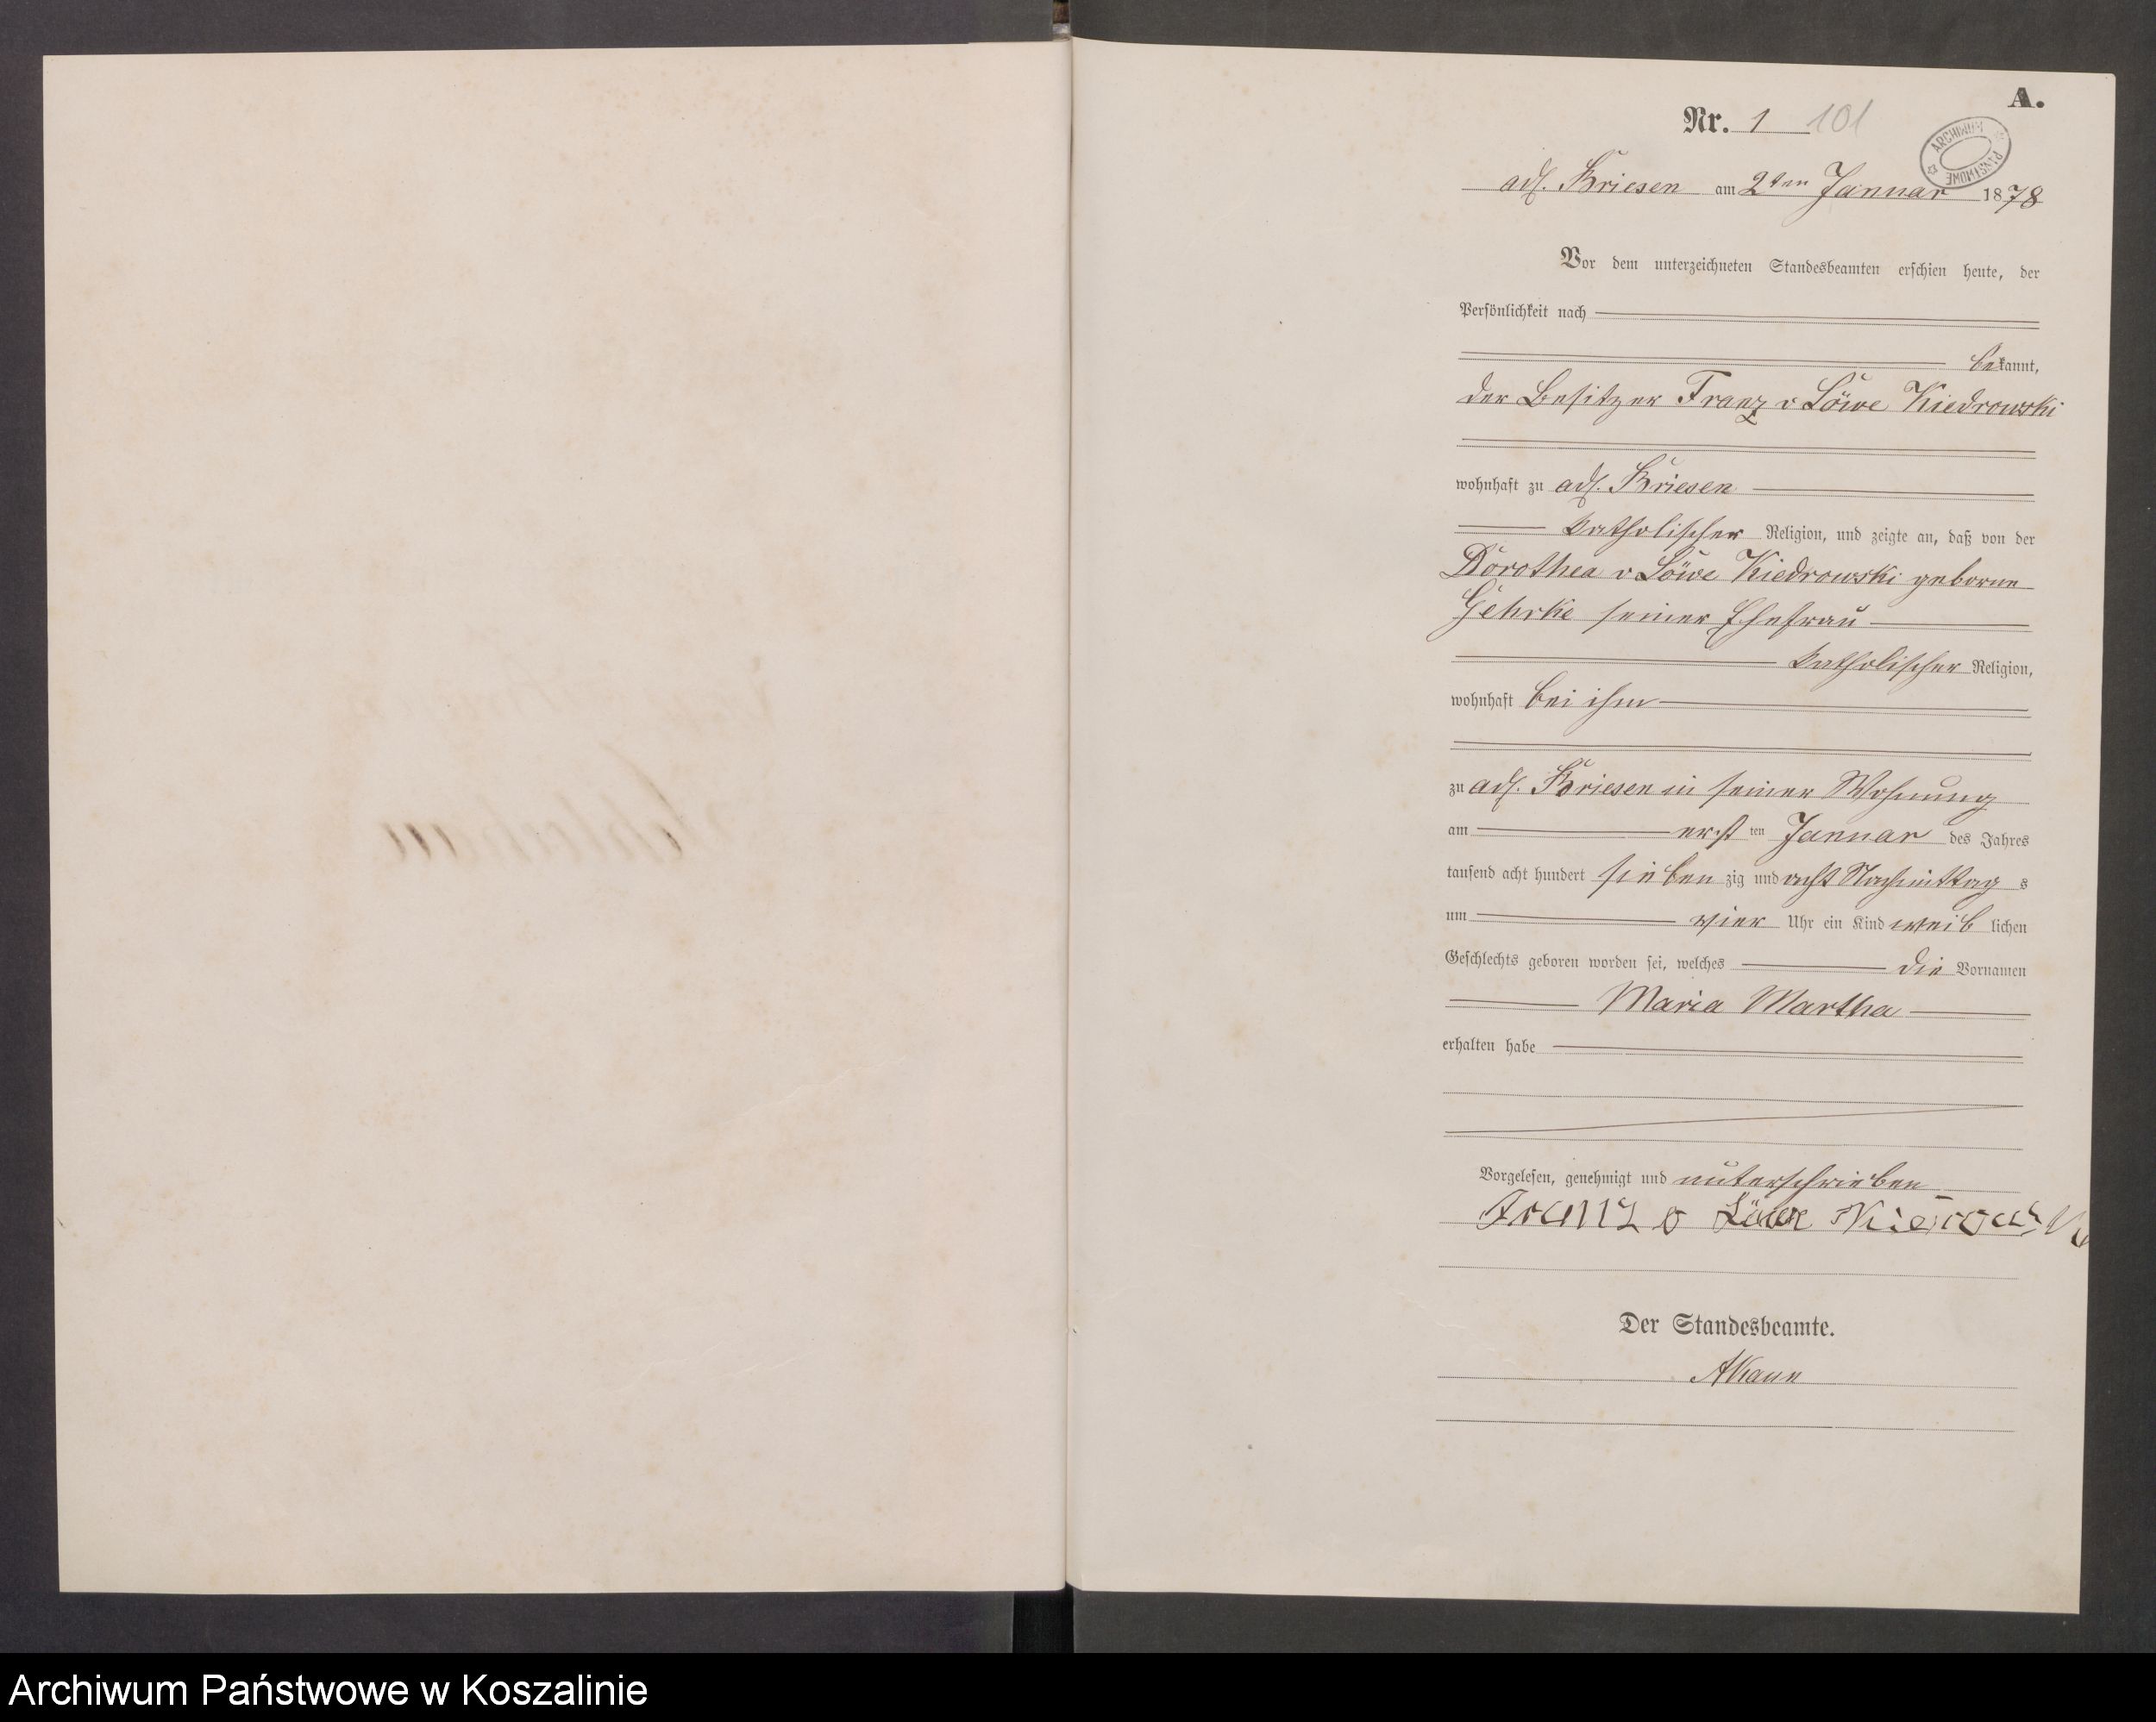 A.
Nr. 1 101
ARCHIWUM PAŃSTWOWE
adl. Briesen am 2ten Januar 1878
Vor dem unterzeichneten Standesbeamten erschien heute, der
Persönlichkeit nach
bekannt,
der Besitzer Franz v Löwe Kiedrowski
wohnhaft zu adl. Briesen
katholischer Religion, und zeigte an, daß von der
Dorothea v Löwe Kiedrowski geborne
Gehrke seiner Ehefrau
katholischer Religion,
wohnhaft bei ihm
zu adl. Briesen in seiner Wohnung
am erst ten Januar des Jahres
tausend acht hundert sieben zig und acht Nachmittag s
um vier Uhr ein Kind weib lichen
Geschlechts geboren worden sei, welches die Vornamen
Maria Martha
erhalten habe
Vorgelesen, genehmigt und unterschrieben
Franz v Löwe
Der Standesbeamte.
Archiwum Państwowe w Koszalinie